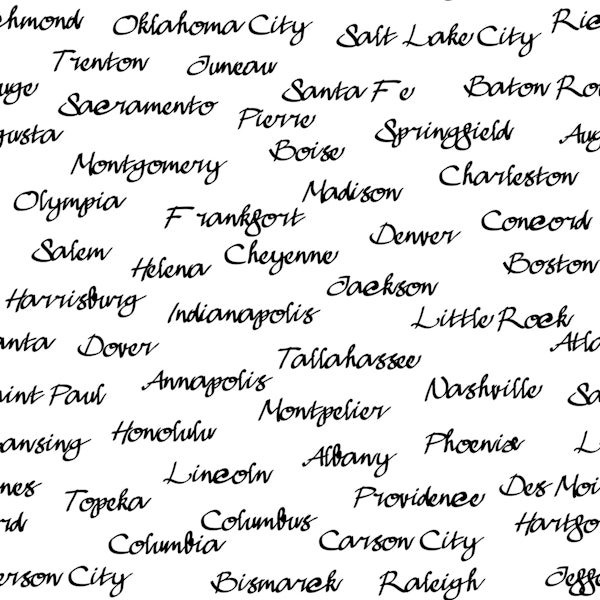 chmond Oklahoma City Salt Lake City Ric
Trenton Juneau
uge Sacramento Santa Fe Baton Rou
Pierre
gusta Springfield Aug
Montgomery Boise
Charleston
Olympia Madison
Frankfort Concord
Denver
Salem Cheyenne
Helena Boston
Jackson
Harrisburg Indianapolis Little Rock
anta Dover Atla
Tallahassee
aint Paul Annapolis Nashville Sa
Montpelier
ansing Honolulu Phoenix L
Albany
Lincoln
nes Topeka Providence Des Moi
rd Columbus Hartfo
Columbia Carson City
erson City Bismarck Raleigh Jeff